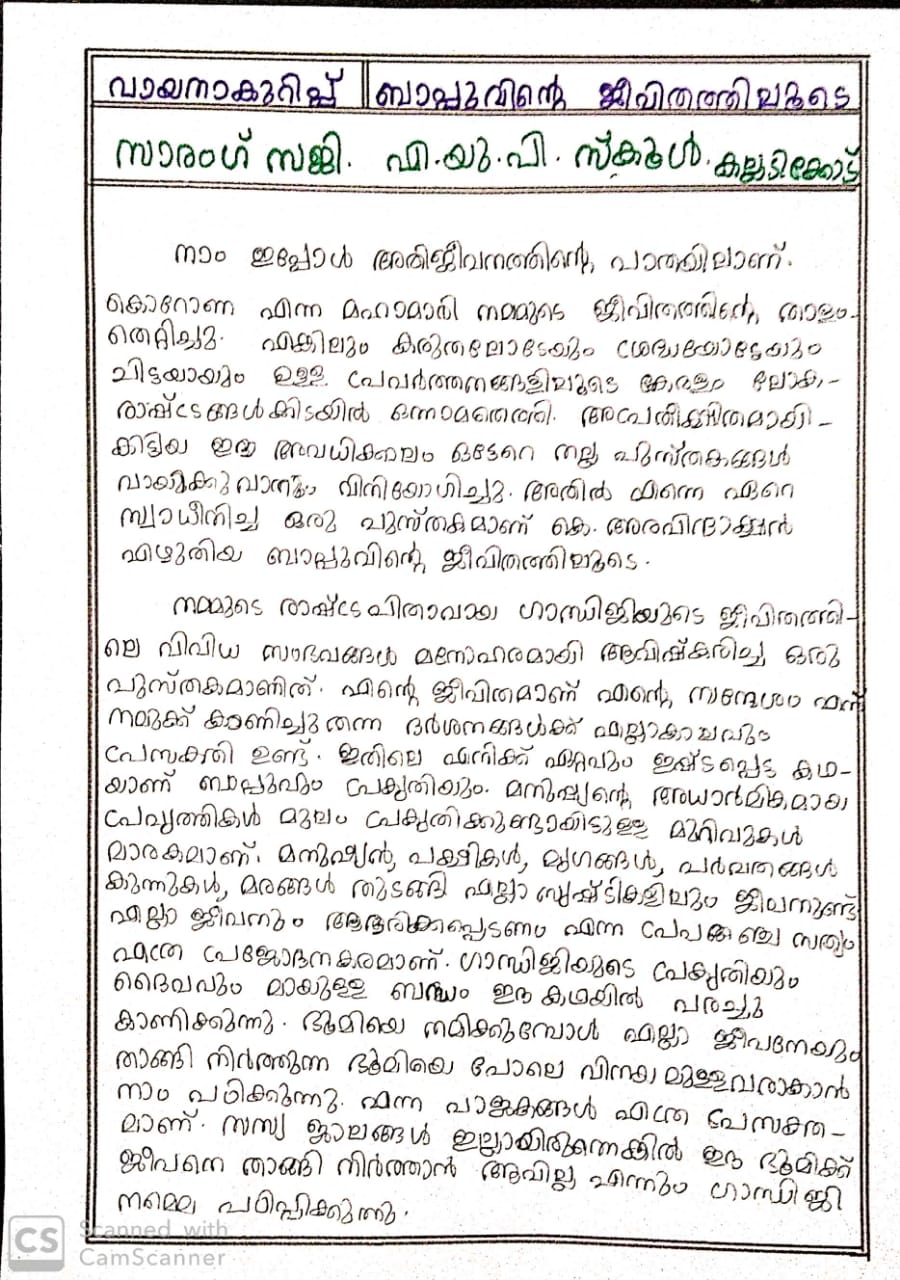 വായനാകുറിപ്പ് ബാപ്പുവിന്റെ ജീവിതത്തിലൂടെ
സാരംഗ് സജി. എ.യു.പി. സ്കൂൾ. കല്ലടിക്കോട്
നാം ഇപ്പോൾ അതിജീവനത്തിന്റെ പാതയിലാണ്.
കൊറോണ എന്ന മഹാമാരി നമ്മുടെ ജീവിതത്തിന്റെ താളം
തെറ്റിച്ചു. എങ്കിലും കരുതലോടേയും ശ്രദ്ധയോടേയും
ചിട്ടയായും ഉള്ള പ്രവർത്തനങ്ങളിലൂടെ കേരളം ലോക-
രാഷ്ട്രങ്ങൾക്കിടയിൽ ഒന്നാമതെത്തി. അപ്രതീക്ഷിതമാകി-
കിട്ടിയ ഈ അവധിക്കാലം ഒട്ടേറെ നല്ല പുസ്തകങ്ങൾ
വായിക്കുവാനും വിനിയോഗിച്ചു. അതിൽ എന്നെ ഏറെ
സ്വാധീനിച്ച ഒരു പുസ്തകമാണ് കെ. അരവിന്ദാക്ഷൻ
എഴുതിയ ബാപ്പുവിന്റെ ജീവിതത്തിലൂടെ.
നമ്മുടെ രാഷ്ട്രപിതാവായ ഗാന്ധിജിയുടെ ജീവിതത്തി-
ലെ വിവിധ സംഭവങ്ങൾ മനോഹരമാകി ആവിഷ്കരിച്ച ഒരു
പുസ്തകമാണിത്. എന്റെ ജീവിതമാണ് എന്റെ സന്ദേശം എന്ന്
നമുക്ക് കാണിച്ചുതന്ന ദർശനങ്ങൾക്ക് എല്ലാകാലവും
പ്രസക്തി ഉണ്ട്. ഇതിലെ എനിക്ക് ഏറ്റവും ഇഷ്ടപ്പെട്ട കഥ-
യാണ് ബാപ്പുവും പ്രകൃതിയും. മനുഷ്യന്റെ അധാർമികമായ
പ്രവൃത്തികൾ മൂലം പ്രകൃതിക്കുണ്ടായിട്ടുള്ള മുറിവുകൾ
മാരകമാണ്. മനുഷ്യൻ, പക്ഷികൾ, മൃഗങ്ങൾ, പർവതങ്ങൾ
കുന്നുകൾ, മരങ്ങൾ തുടങ്ങി എല്ലാ സൃഷ്ടികളിലും ജീവനുണ്ട്
എല്ലാ ജീവനും ആദരിക്കപ്പെടണം എന്ന പ്രപഞ്ച സത്യം
എത്ര പ്രജോദനകരമാണ്. ഗാന്ധിജിയുടെ പ്രകൃതിയും
ദൈവവും മായുള്ള ബന്ധം ഈ കഥയിൽ വരച്ചു
കാണിക്കുന്നു. ഭൂമിയെ നമിക്കുമ്പോൾ എല്ലാ ജീവനേയും
താങ്ങി നിർത്തുന്ന ഭൂമിയെ പോലെ വിനയമുള്ളവരാകാൻ
നാം പഠിക്കുന്നു. എന്ന വാക്കുകൾ എത്ര പ്രസക്ത-
മാണ്. സസ്യ ജാലങ്ങൾ ഇല്ലായിരുന്നെങ്കിൽ ഈ ഭൂമിക്ക്
ജീവനെ താങ്ങി നിർത്താൻ ആവില്ല എന്നും ഗാന്ധിജി
നമ്മെ പഠിപ്പിക്കുന്നു.
CS Scanned with
CamScanner